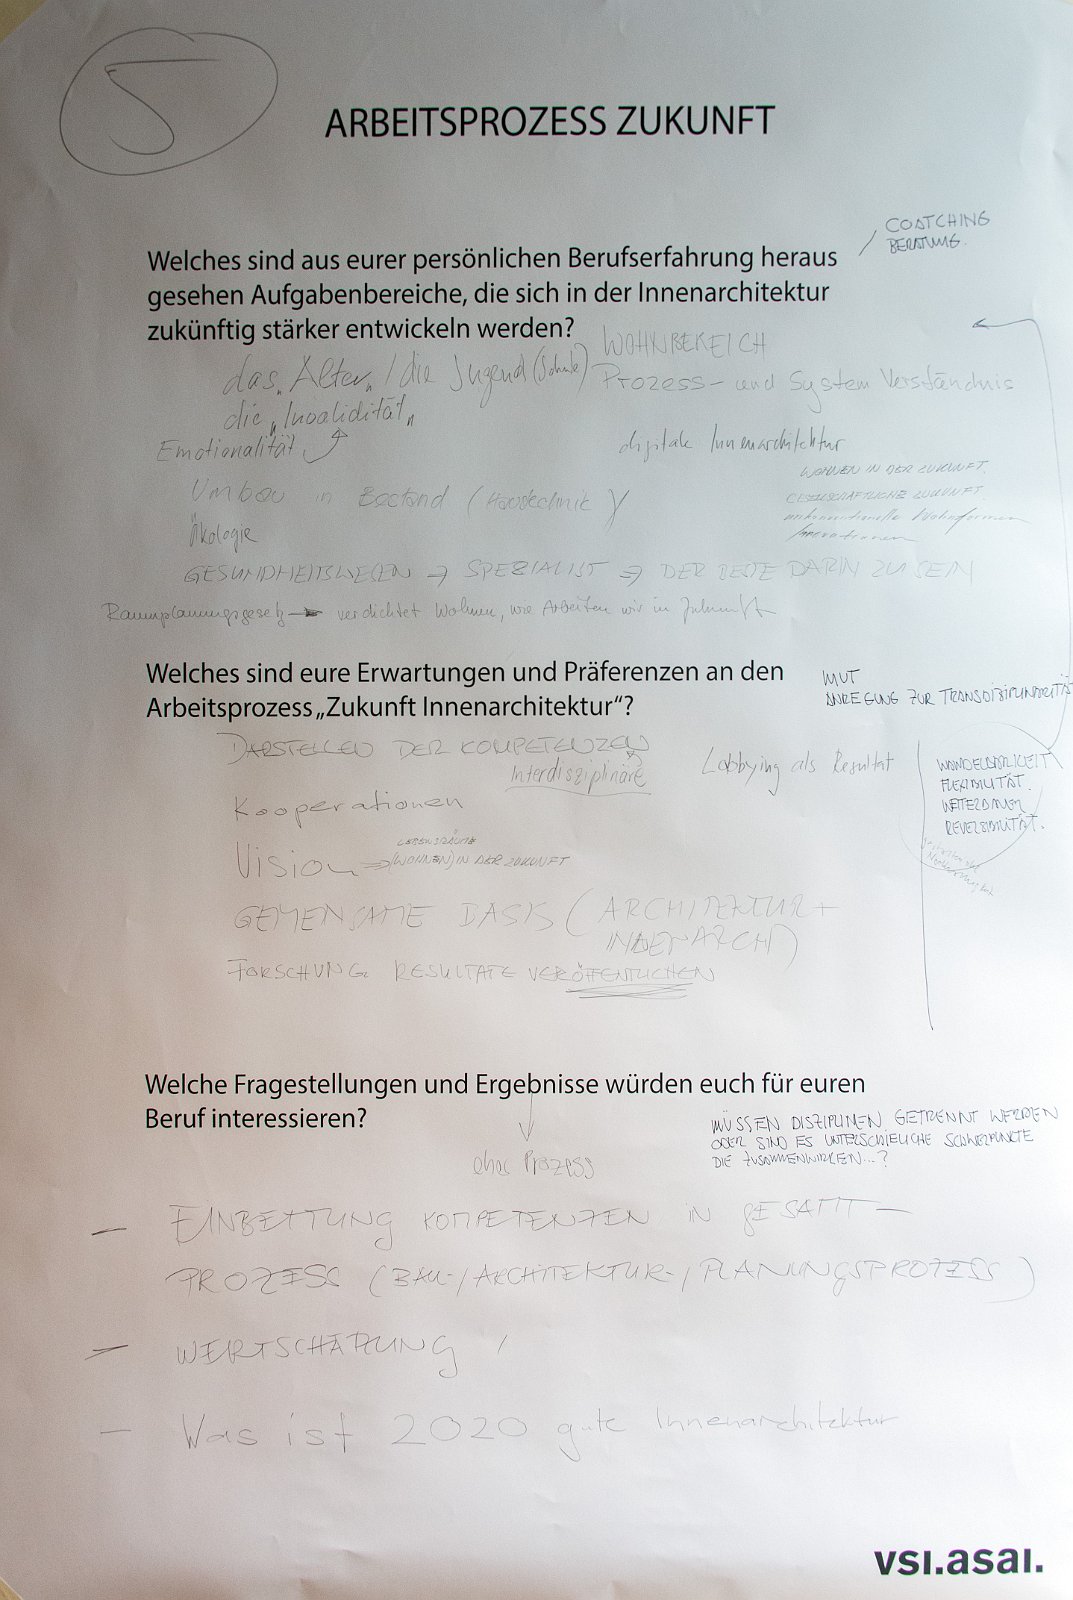 5
ARBEITSPROZESS ZUKUNFT
COATCHING
BERATUNG.
Welches sind aus eurer persönlichen Berufserfahrung heraus
gesehen Aufgabenbereiche, die sich in der Innenarchitektur
zukünftig stärker entwickeln werden?
WOHNBEREICH
das „Alter„ / die Jugend (Schule)
Prozess- und System Verständnis
die „Invalidität„
Emotionalität
digitale Innenarchitektur
WOHNEN IN DER ZUKUNFT.
Umbau in Bestand (Haustechnik)
GESELLSCHAFTLICHE ZUKUNFT.
unkonventionelle Wohnformen
Ökologie
Innovationen
GESUNDHEITSWESEN → SPEZIALIST → DER BESTE DARIN ZU SEIN
Raumplanungsgesetz → verdichtet Wohnen, wie Arbeiten wir in Zukunft
Welches sind eure Erwartungen und Präferenzen an den
Arbeitsprozess „Zukunft Innenarchitektur“?
MUT
ANREGUNG ZUR TRANSDISZIPLINARITÄT
DARSTELLEN DER KOMPETENZEN
Interdisziplinäre
Lobbying als Resultat
WANDELBARKEIT
FLEXIBILITÄT.
WEITERBAUEN
REVERSIBILITÄT.
Kooperationen
LEBENSRÄUME
Vision → (WOHNEN) IN DER ZUKUNFT
GEMEINSAME BASIS (ARCHITEKTUR +
INNENARCH)
FORSCHUNG RESULTATE VERÖFFENTLICHEN
Welche Fragestellungen und Ergebnisse würden euch für euren
Beruf interessieren?
eher Prozess
MÜSSEN DISZIPLINEN GETRENNT WERDEN
ODER SIND ES UNTERSCHIEDLICHE SCHWERPUNKTE
DIE ZUSAMMENWIRKEN...?
– EINBETTUNG KOMPETENZEN IN GESAMT –
PROZESS (BAU-/ARCHITEKTUR-/PLANUNGSPROZESS)
– WERTSCHÄTZUNG /
– Was ist 2020 gute Innenarchitektur
vsi.asai.